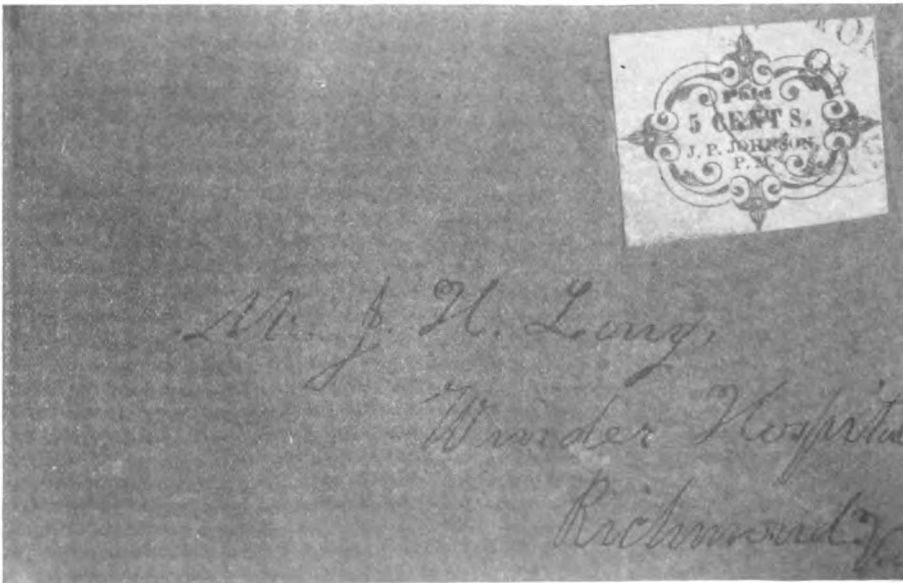 Paid
5 CENTS.
J. P. JOHNSON,
P. M.
Mr. J. H. Long,
Winder Hospital
Richmond